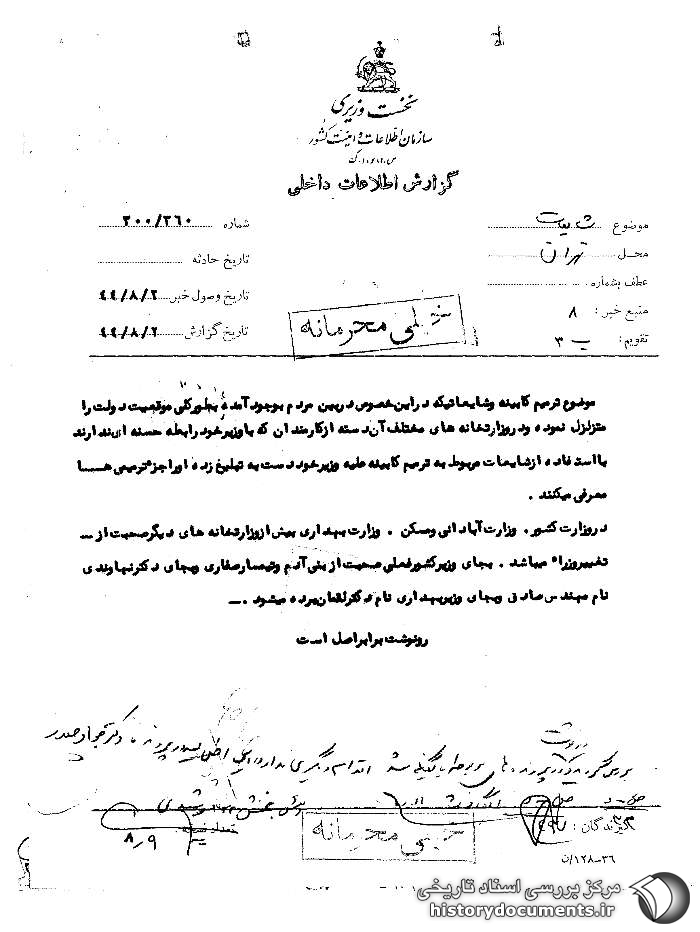 نخست وزیری
سازمان اطلاعات و امنیت کشور
س.ا.و.ا.ک
گزارش اطلاعات داخلی
موضوع شایعات
شماره ۳۰۰/۲۶۰
محل تهران
تاریخ حادثه
عطف بشماره
تاریخ وصول خبر ۴۴/۸/۲
منبع خبر: ۸
تاریخ گزارش ۴۴/۸/۲
تقویم: ب ۳
خیلی محرمانه
موضوع ترمیم کابینه وشایعاتیکه دراین خصوص دربین مردم بوجود آمده بطورکلی موقعیت دولت را
متزلزل نموده ودروزارتخانه های مختلف آن دسته ازکارمندان که باوزیرخود رابطه حسنه ای ندارند
بااستفاده ازشایعات مربوط به ترمیم کابینه علیه وزیرخود دست به تبلیغ زده اوراجزءترمیمی هسا
معرفی میکنند .
دروزارت کشور . وزارت آبادانی ومسکن . وزارت بهداری بیش ازوزارتخانه های دیگرصحبت از ...
تغییروزراء میباشد . بجای وزیرکشورفعلی صحبت از بنی آدم وتیمسارصفاری وبجای دکترنهاوندی
نام مهندس صادقی وبجای وزیربهداری نام دکترلقمان برده میشود . ..
رونوشت برابراصل است
رونوشت
دکتر جواد صدر
گیرندگان:
خیلی محرمانه
۸٫۹
۳۶-۱۲۸/ن
مرکز بررسی اسناد تاریخی
historydocuments.ir